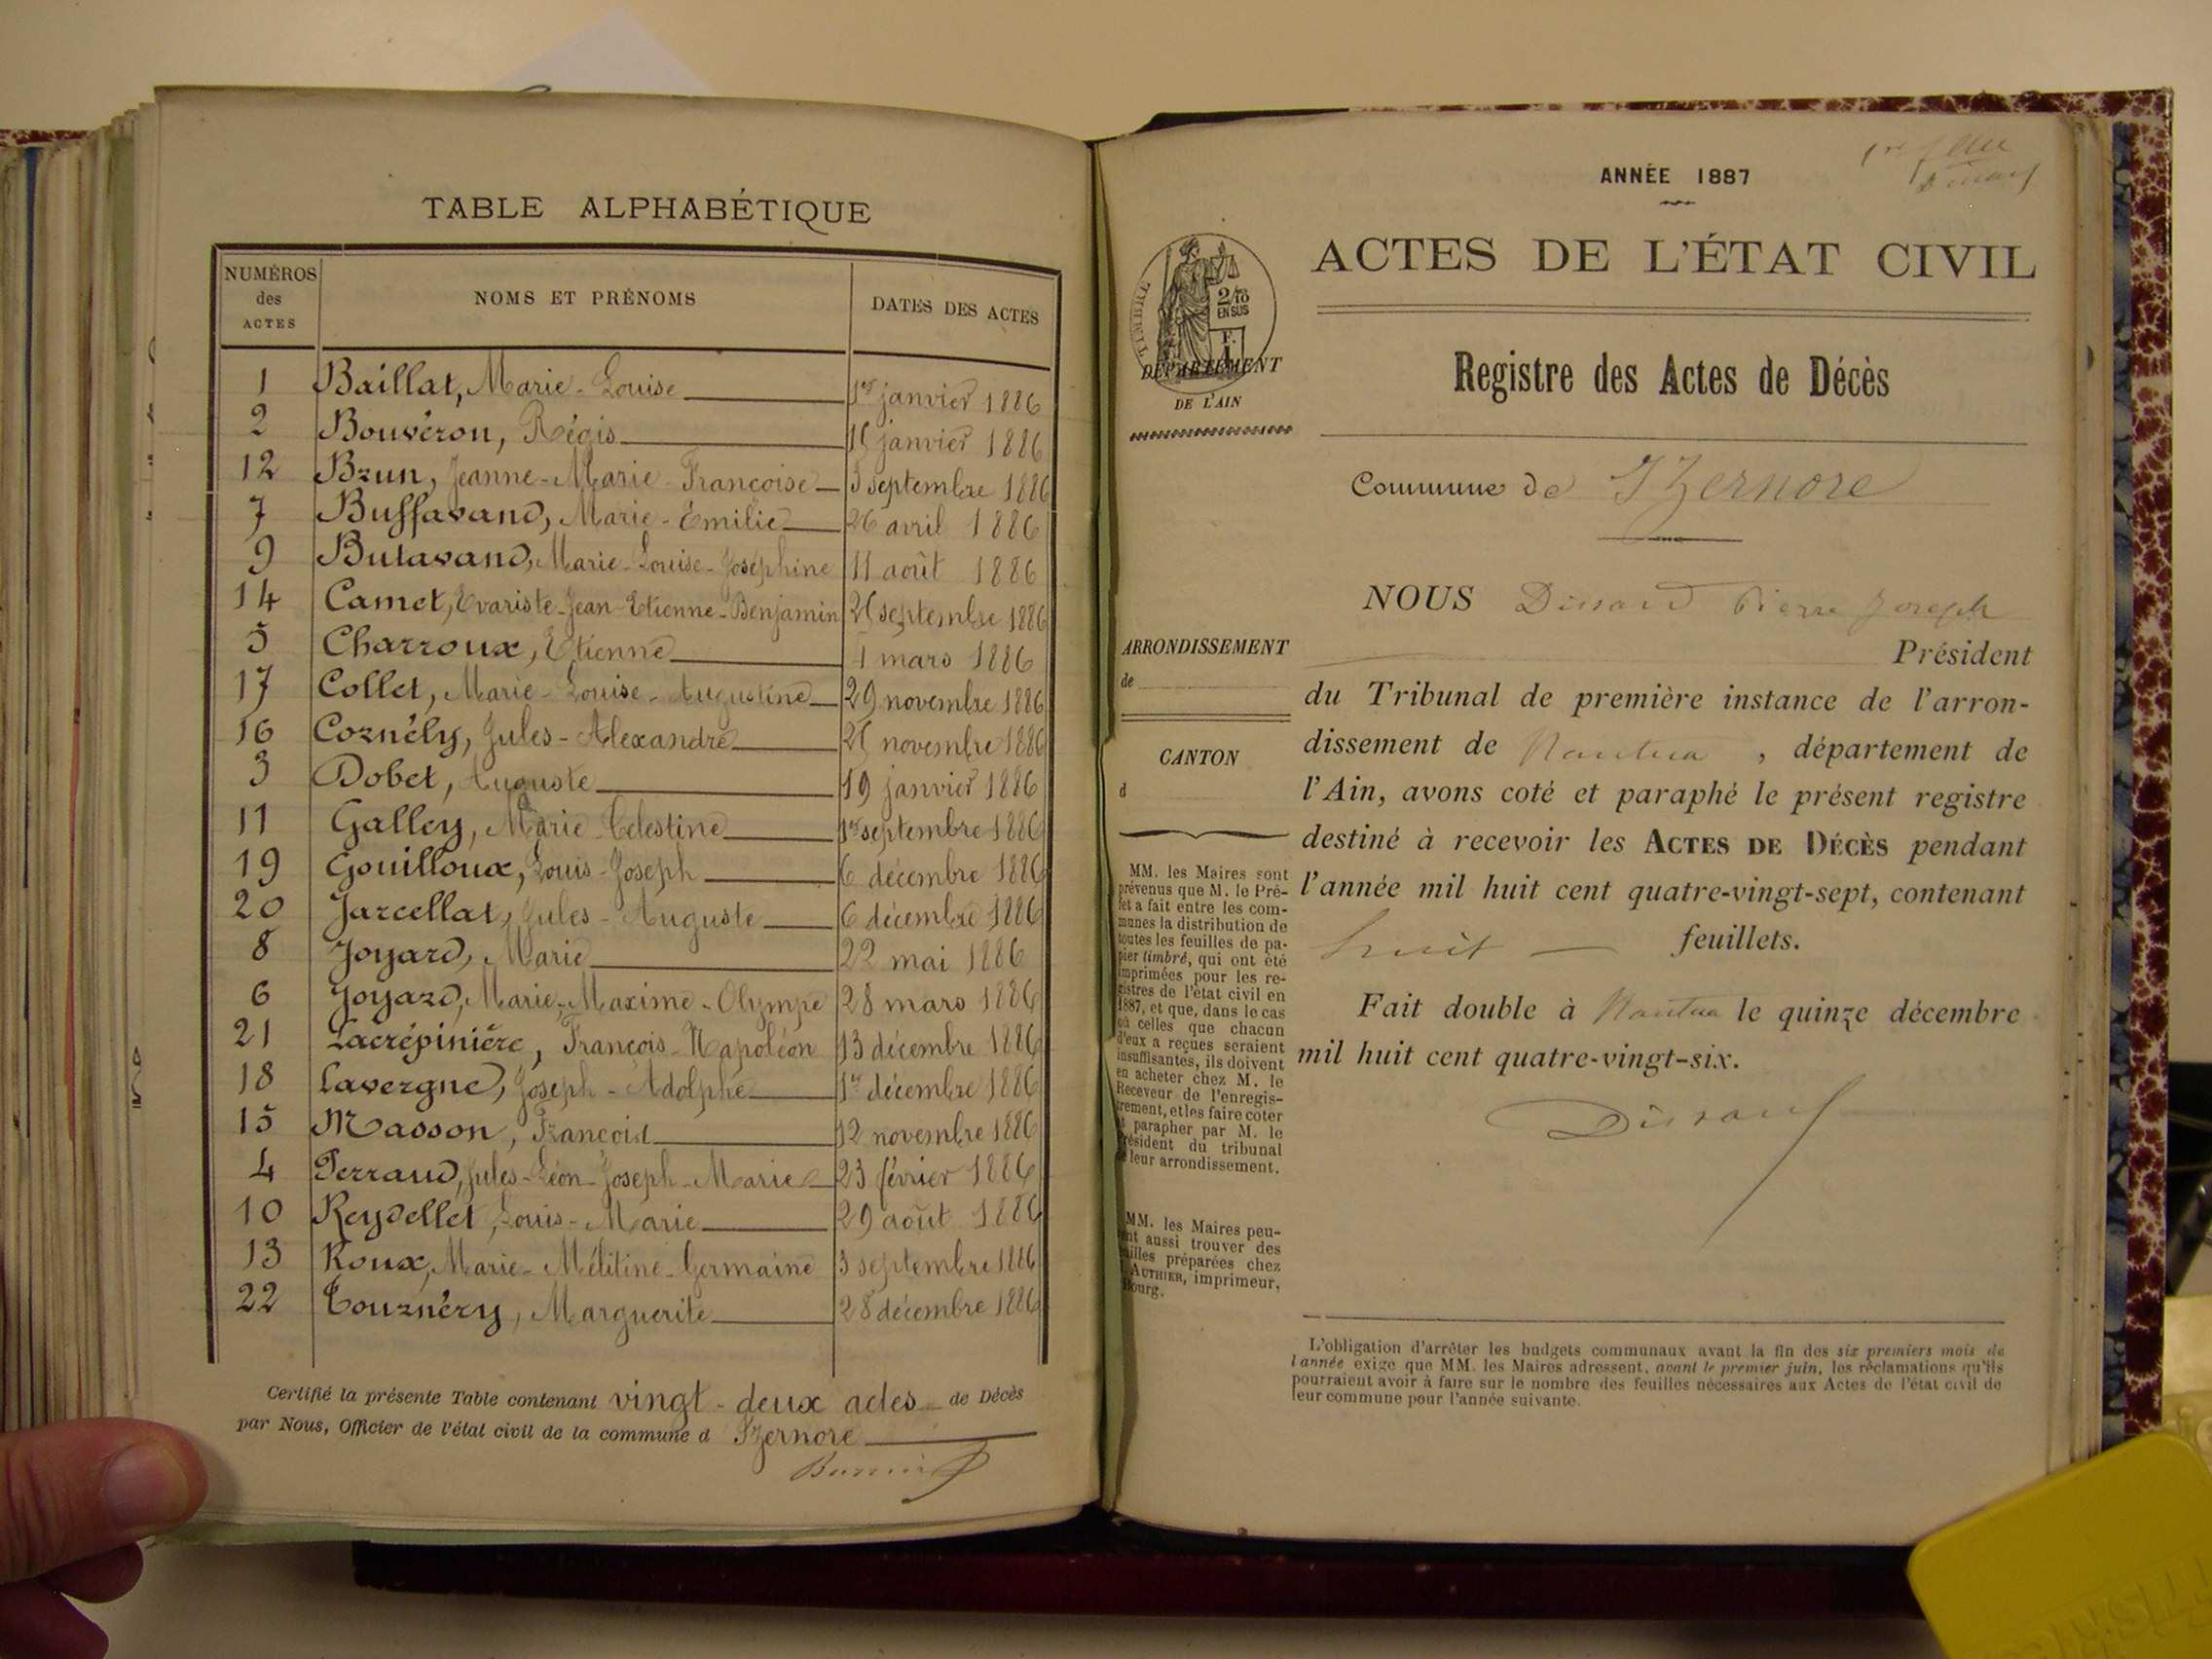 TABLE ALPHABÉTIQUE
NUMÉROS des ACTES NOMS ET PRÉNOMS DATES DES ACTES
1 Baillat, Marie-Louise 1er janvier 1886
2 Bouvéron, Régis 15 janvier 1886
12 Brun, Jeanne-Marie-Françoise 3 septembre 1886
7 Buffavand, Marie-Émilie 26 avril 1886
9 Butavand, Marie-Louise-Joséphine 11 août 1886
14 Camet, Evariste-Jean-Etienne-Benjamin 25 septembre 1886
5 Charroux, Etienne 1 mars 1886
17 Collet, Marie-Louise-Augustine 29 novembre 1886
16 Cornély, Jules-Alexandre 25 novembre 1886
3 Dobet, Auguste 19 janvier 1886
11 Galley, Marie-Célestine 1er septembre 1886
19 Gouilloux, Louis-Joseph 6 décembre 1886
20 Jarcellat, Jules-Auguste 6 décembre 1886
8 Joyard, Marie 22 mai 1886
6 Joyard, Marie-Maxime-Olympe 28 mars 1886
21 Lacrépinière, François-Napoléon 13 décembre 1886
18 Lavergne, Joseph-Adolphe 1er décembre 1886
15 Masson, François 12 novembre 1886
4 Perraud, Jules-Léon-Joseph-Marie 23 février 1886
10 Reydellet, Louis-Marie 29 août 1886
13 Roux, Marie-Mélitine-Germaine 3 septembre 1886
22 Tournéry, Marguerite 28 décembre 1886
Certifié la présente Table contenant vingt-deux actes de Décès
par Nous, Officier de l'état civil de la commune d Izernore
1re
ANNÉE 1887
ACTES DE L'ÉTAT CIVIL
TIMBRE
2/10
EN SUS
F.
1
DÉPARTEMENT
DE L'AIN
Registre des Actes de Décès
Commune de Izernore
NOUS Dissard Pierre Joseph
Président
du Tribunal de première instance de l'arron-
dissement de Nantua, département de
l'Ain, avons coté et paraphé le présent registre
destiné à recevoir les ACTES DE DÉCÈS pendant
l'année mil huit cent quatre-vingt-sept, contenant
huit feuillets.
Fait double à Nantua le quinze décembre
mil huit cent quatre-vingt-six.
Dissard
ARRONDISSEMENT
de
CANTON
d
MM. les Maires sont
prévenus que M. le Pré-
fet a fait entre les com-
munes la distribution de
toutes les feuilles de pa-
pier timbré, qui ont été
imprimées pour les re-
gistres de l'état civil en
1887, et que, dans le cas
où celles que chacun
d'eux a reçues seraient
insuffisantes, ils doivent
en acheter chez M. le
Receveur de l'enregis-
trement, et les faire coter
et parapher par M. le
Président du tribunal
de leur arrondissement.
MM. les Maires peu-
vent aussi trouver des
feuilles préparées chez
AUTHIER, imprimeur,
Bourg.
L'obligation d'arrêter les budgets communaux avant la fin des six premiers mois de
l'année exige que MM. les Maires adressent, avant le premier juin, les réclamations qu'ils
pourraient avoir à faire sur le nombre des feuilles nécessaires aux Actes de l'état civil de
leur commune pour l'année suivante.